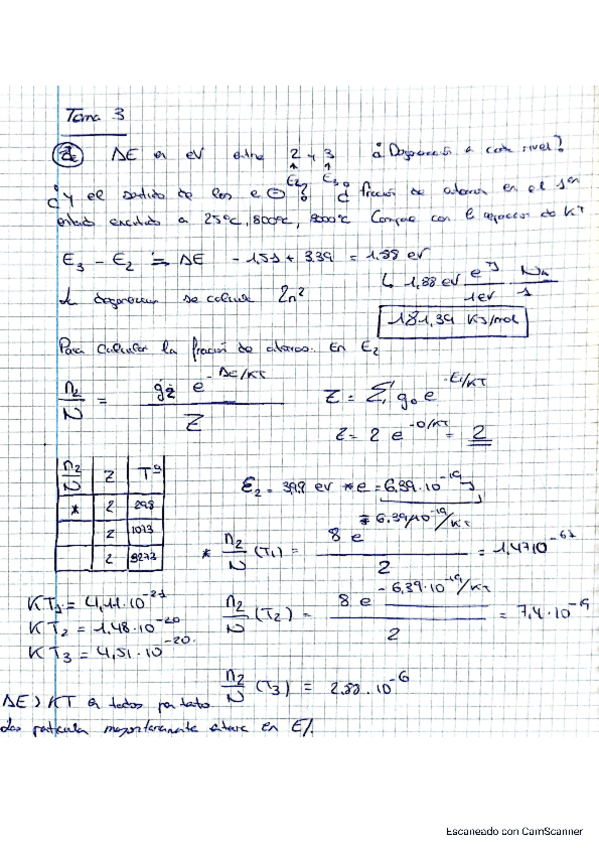 Tema 3
2. ΔE en eV entre 2 y 3 ¿Degeneración de cada nivel?
E2 E3
¿y el sentido de los e⊖? ¿fracción de átomos en el 1er
estado excitado a 25ºC, 800ºC, 3000ºC Compare con la KT
E3 - E2 = ΔE - 1,51 + 3,39 = 1,88 eV
↳ 1,88 eV e J / 1 eV NA / 1
La degeneración se calcula 2n²
181,39 KJ/mol
Para calcular la fracción de átomos en E2
n2/N = g2 e^-ΔE/KT / Z
Z = Σ g e^-Ei/KT
Z = 2 e^-0/KT = 2
n2/N Z Tª
* 2 298
2 1073
2 3273
E2 = 3,99 eV * e = 6,39·10^-19 J
* n2/N (T1) = 8 e^-6,39·10^-19/KT / 2 = 1,47·10^-67
KT1 = 4,11·10^-21
KT2 = 1,48·10^-20
KT3 = 4,51·10^-20
n2/N (T2) = 8 e^-6,39·10^-19/KT / 2 = 7,4·10^-19
n2/N (T3) = 2,88·10^-6
ΔE > KT en todos por tanto
partícula mayoritariamente estará en E1.
Escaneado con CamScanner